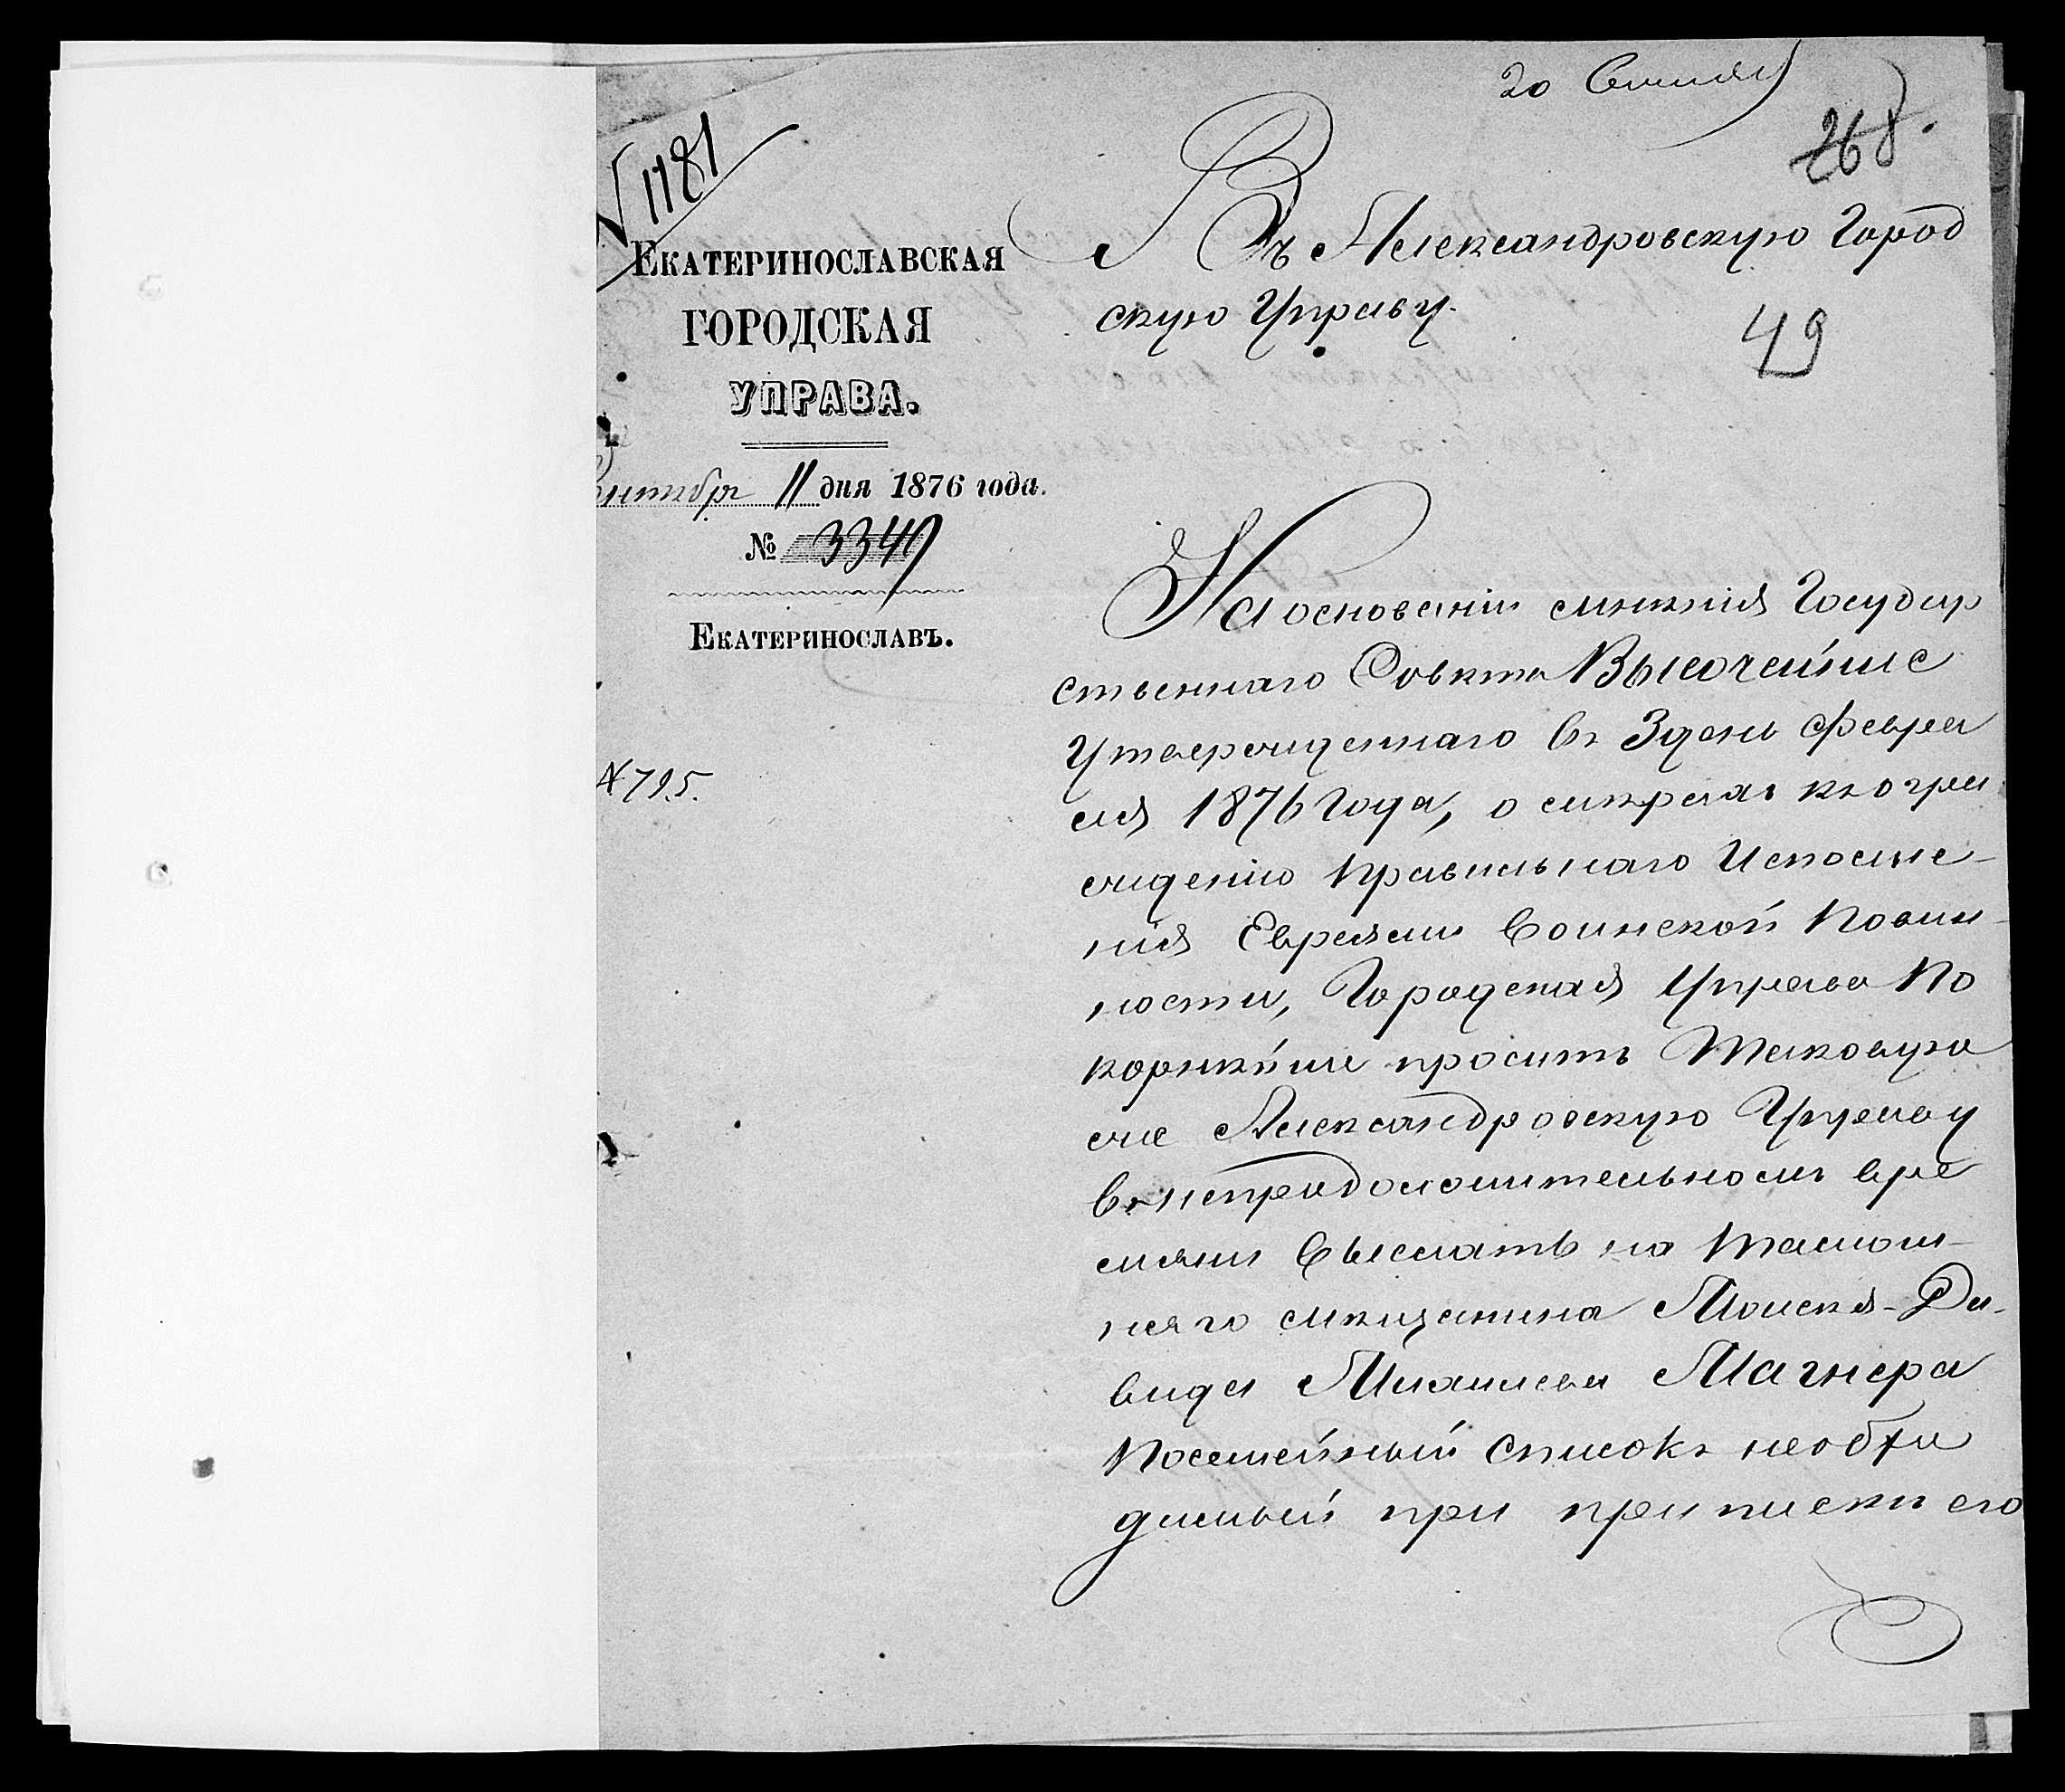 20 Сентяб
N 1181
268.
ЕКАТЕРИНОСЛАВСКАЯ
ГОРОДСКАЯ
УПРАВА.
ентябр 11 дня 1876 года.
№ 3349
ЕКАТЕРИНОСЛАВЪ.
N 795.
Въ Александровскую Город
скую Управу.
49
На основаніи мнѣнія Государ
ственнаго Совѣта Высочайше
Утвержденнаго въ 3 день Февра
ля 1876 Года, о мѣрахъ къ огра
жденію Правильнаго Исполне-
нія Евреями Воинской Повин-
ности, Городская Управа По
корнѣйше проситъ Таковую
же Александровскую Управу
въ непродолжительномъ вре
мяни Выслать на тамош-
няго мѣщанина Моисея-Да-
вида Магнера
Посемейный Списокъ необхо
димый при приписки его